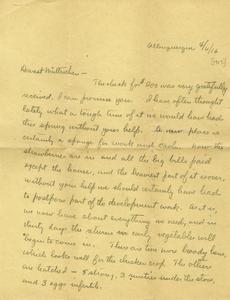 Albuquerque 4/6/16
Dearest Mütterchen —
The check for $200 was very gratefully
received, I can promise you. I have often thought
lately what a tough time of it we would have had
this spring without your help. A new place is
certainly a sponge for work and cash. Now the
strawberries are in and all the big bills paid
except the house, and the heaviest part of it over,
without your help we should certainly have had
to postpone part of the development work. As it is,
we now have about everything we need, and in
thirty days the alfalfa and early vegetables will
begin to come in. There are two now broody hens,
which looks well for the chicken crop. The others
are hatched — 8 strong, 3 under the stove,
and 3 eggs infertile.